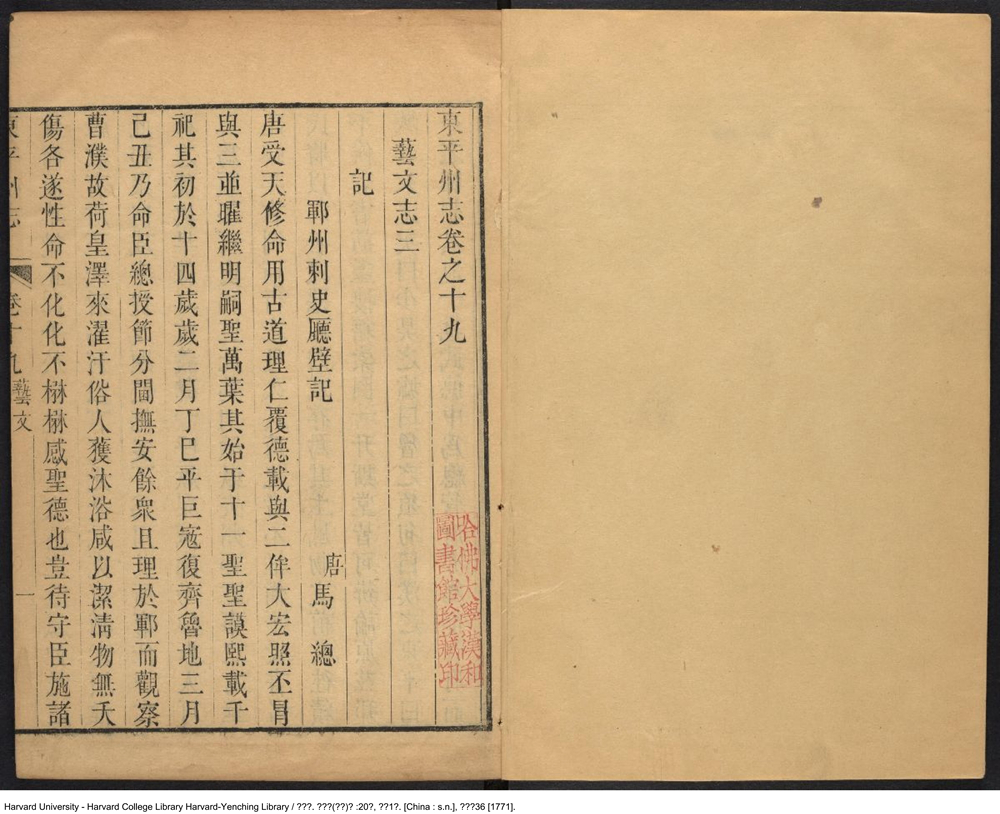 東平州志卷之十九
藝文志三
記
鄆州刺史廳壁記
唐馬 總
唐受天修命用古道理仁覆德載與二侔大宏照丕冒
與三並曜繼明嗣聖萬葉其始于十一聖聖謨熙載千
祀其初於十四歲歲二月丁巳平巨寇復齊魯地三月
己丑乃命臣總授節分閫撫安餘衆且理於鄆而觀察
曹濮故荷皇澤來濯汙俗人獲沐浴咸以潔清物無夭
傷各遂性命不化化不楙楙感聖德也豈待守臣施諸
東平州志
卷十九
藝文
一
哈佛大學漢和
圖書館珍藏印
Harvard University - Harvard College Library Harvard-Yenching Library / ???. ???(??)? :20?, ??1?. [China : s.n.], ???36 [1771].